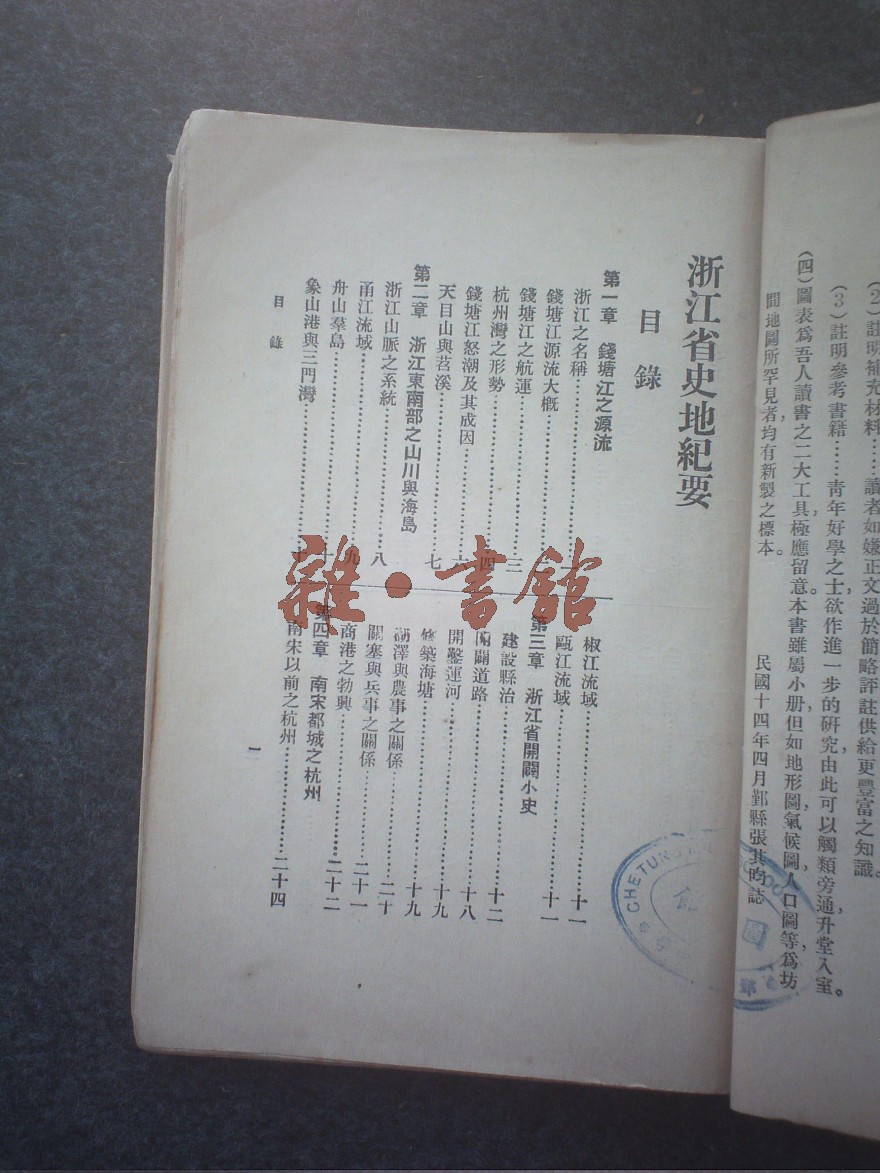 (2)註明補充材料……讀者如嫌正文過於簡略評註供給更豐富之知識。
(3)註明參考書籍……靑年好學之士,欲作進一步的硏究,由此可以觸類旁通,升堂入室。
(四)圖表爲吾人讀書之二大工具,極應留意。本書雖屬小册,但如地形圖,氣候圖,人口圖等,爲坊
間地圖所罕見者,均有新製之標本。
民國十四年四月鄞縣張其昀誌
浙江省史地紀要
目錄
第一章 錢塘江之源流
浙江之名稱
錢塘江源流大槪
錢塘江之航運……三
杭州灣之形勢……四
錢塘江怒潮及其成因……六
天目山與苕溪……七
第二章 浙江東南部之山川與海島
浙江山脈之系統……八
甬江流域……九
舟山羣島
象山港與三門灣
椒江流域……十一
甌江流域……十一
第三章 浙江省開闢小史
建設縣治……十二
開闢道路……十八
開鑿運河……十九
修築海塘……十九
湖澤與農事之關係……二十
關塞與兵事之關係……二十一
商港之勃興……二十二
第四章 南宋都城之杭州
南宋以前之杭州……二十四
目錄
一
雜·書館
CHETUNG
館
圖